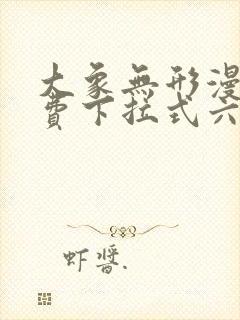 大象無形漫
費下拉式六
虾醬.